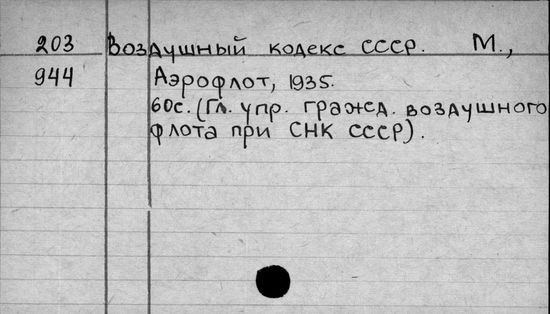 203 Воздушный кодекс СССР. М.,
944 Аэрофлот, 1935.
60с. (Гл. упр. гражд. воздушного
флота при СНК СССР).